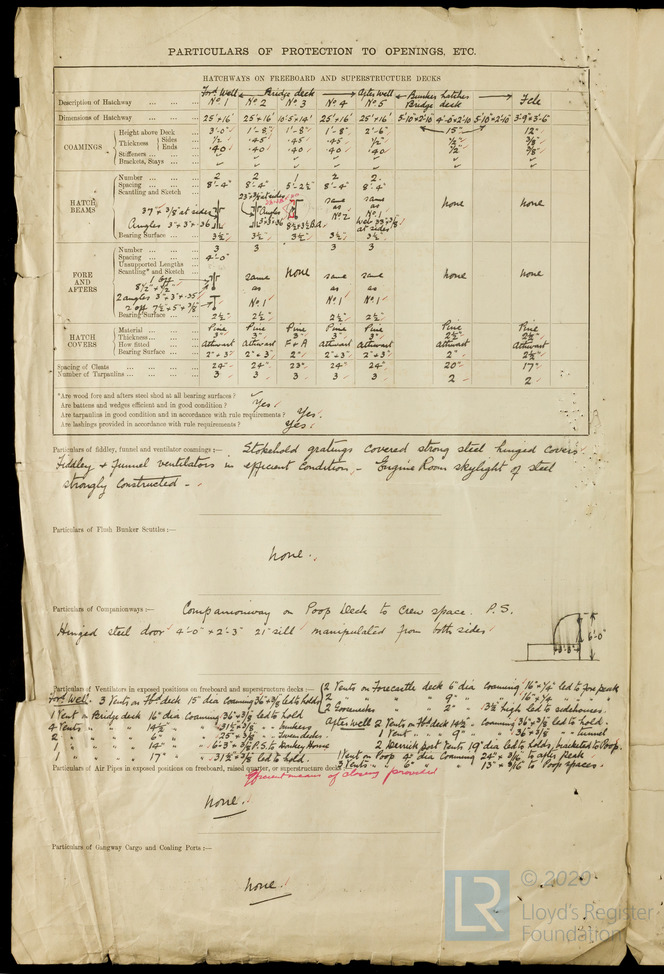 PARTICULARS OF PROTECTION TO OPENINGS, ETC.
HATCHWAYS ON FREEBOARD AND SUPERSTRUCTURE DECKS
Ford Well Bridge deck After Well Bunker hatches
Description of Hatchway ... ... ... No 1 No 2 No 3 No 4 No 5 Bridge deck Fcle
Dimensions of Hatchway ... ... ... 25' × 16' 25' × 16' 10'.5 × 14' 25' × 16' 25' × 16' 5'-10" × 2'-10" 4'-0" × 2'-10" 5'-10" × 2'-10" 3'-9" × 3'-6"
COAMINGS
Height above Deck 3'-0" 1'-8" 1'-8" 1'-8" 2'-6" 15" 12"
Thickness Sides 1/2 .45 .45 .45 1/2 1/2 3/8
Ends .40 .40 .40 .40 .40 1/2 3/8
Stiffeners ... ... ...
Brackets, Stays ... ...
HATCH BEAMS
Number ... ... ... 2 2 1 2 2
Spacing ... ... ... 8'-4" 8'-4" 5'-2 1/2 8'-4" 8'-4"
Scantling and Sketch
23 × 3/8 at sides same same none none
37" × 3/8 at sides Angles as as
Angles 3 × 3 × .36 3 × 3 × .36 8 1/2 × 3 1/2 B.A. No 2 No 1
at sides
Bearing Surface ... ... 3 1/2 3 1/2 3 1/2 3 1/2 3 1/2
FORE AND AFTERS
Number ... ... ... 3 3 3 3
Spacing ... ... ... 4'-0"
Unsupported Lengths ...
Scantling* and Sketch ...
1 off none none none
8 1/2" × 1/2" same same same
2 angles 3 × 3 × .35 as as as
2 off 7 1/2 × 5 × 3/8 No 1 No 1 No 1
Bearing Surface ... ... 2 1/2 2 1/2 2 1/2 2 1/2
HATCH COVERS
Material ... ... ... Pine Pine Pine Pine Pine Pine Pine
Thickness ... ... ... 3" 3" 3" 3" 3" 2 1/2 2 1/2
How fitted ... ... Athwart Athwart F + A Athwart Athwart Athwart Athwart
Bearing Surface ... ... 2" × 3 2" × 3 2" 2" × 3 2" × 3 2" 2 1/2
Spacing of Cleats ... ... ... ... 24" 24" 23" 24" 24" 20" 17"
Number of Tarpaulins ... ... ... ... 3 3 3 3 3 2 2
*Are wood fore and afters steel shod at all bearing surfaces?
Are battens and wedges efficient and in good condition? Yes
Are tarpaulins in good condition and in accordance with rule requirements? Yes.
Are lashings provided in accordance with rule requirements? Yes
Particulars of fiddley, funnel and ventilator coamings:— Stokehold gratings covered strong steel hinged covers
Fiddley + funnel ventilators in efficient condition, - Engine Room skylight of steel
strongly constructed -
Particulars of Flush Bunker Scuttles:—
None.
Particulars of Companionways:— Companionway on Poop Deck to crew space. P.S.
Hinged steel door 4'-0" × 2'-3" 21" sill manipulated from both sides
6'-0"
3'-3"
Particulars of Ventilators in exposed positions on freeboard and superstructure decks:— 2 Vents on Forecastle deck 6" dia Coaming 16" × 1/4" led to fore peak
Ford Well. 3 Vents on Fbd deck 15" dia Coaming 36" × 3/8 led to holds 2 " " " 9" " 16" × 1/4 " "
2 Goosenecks " " 2" " 3 1/2 high led to sidehouses.
1 Vent on Bridge deck 16" dia Coaming 36" × 3/8 led to hold After Well 2 Vents on Fbd deck 14 1/2" Coaming 36" × 3/8 led to hold.
4 Vents " " 14 1/2 " 31 1/2 × 3/8 " " bunkers 1 Vent " " 9" " 36" × 3/8 " " tunnel
2 " " 6" " 25" × 3/8 " " Tween decks 2 Derrick post Vents 19" dia led to holds, bracketed to Poop.
1 " " 14" " 6'-3" × 3/8 P.S. to Donkey House 1 Vent on Poop 4" dia Coaming 24" × 3/16 to after peak
1 " " 17" " 31 1/2 × 3/8 led to hold. 3 Vents " " 6" " 15" × 3/16 to Poop spaces.
Particulars of Air Pipes in exposed positions on freeboard, raised quarter, or superstructure decks
Efficient means of closing provided
None.
Particulars of Gangway Cargo and Coaling Ports:—
None.
© 2020
LR
Lloyd's Register
Foundation